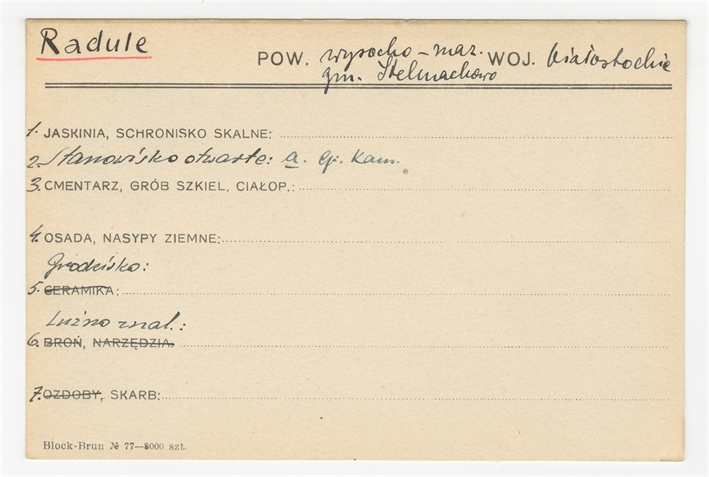 Radule
POW. wysocko-maz. WOJ. białostockie
gm. Stelmachowo
1. JASKINIA, SCHRONISKO SKALNE:
2. Stanowisko otwarte: a. Ep. Kam.
3. CMENTARZ, GRÓB SZKIEL. CIAŁOP.:
4. OSADA, NASYPY ZIEMNE:
Grodzisko:
5. CERAMIKA:
Luźno znal.:
6. BROŃ, NARZĘDZIA.
7. OZDOBY, SKARB:
Block-Brun № 77—8000 szt.